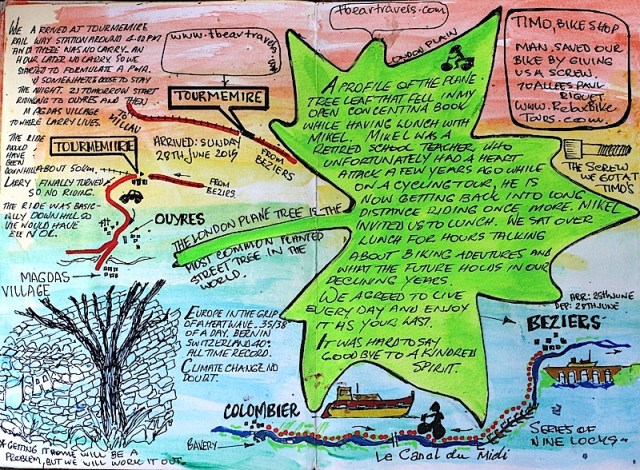 We arrived at Tourmemire
railway station around 4-15pm
and there was no Larry. An
hour later no Larry. So we
started to formulate a plan.
1) Somewhere close to stay
the night. 2) Tomorrow start
riding to Ouyres and then
Magdas village
to where Larry lives.
The ride
would
have
been
downhill about 50km.
Larry finally turned
so no riding.
The ride was basic-
ally downhill so
we would have
been ok.
www.tbeartravels.com
To
Millau
TOURMEMIRE
Arrived: Sunday
28th June 2019
From
Beziers
TOURMEMIRE
From
Beziers
OUYRES
MAGDAS
VILLAGE
tbeartravels.com
London Plain
A profile of the plane
tree leaf that fell in my
open continental book
while having lunch with
Mikel. Mikel was a
retired school teacher who
unfortunately had a heart
attack a few years ago while
on a cycling tour, he is
now getting back into long
distance riding once more. Mikel
invited us to lunch. We sat over
lunch for hours talking
about biking adventures and
what the future holds in our
declining years.
We agreed to live
every day and enjoy
it as your last.
It was hard to say
goodbye to a kindred
spirit.
The London plane tree is the
most common planted
street tree in the
world.
Timo, Bike shop
man, saved our
bike by giving
us a screw.
70 Allees Paul
Riquet
www.RelaxBike
Tours.com.
The screw
we got at
Timos
Europe in the grip
of a heatwave. 35/38°
of a day. Bern in
Switzerland 40°
all time record.
Climate change no
doubt.
* Getting it home will be a
problem, but we will work it out.
Arr: 25th June
Dep: 28th June
BEZIERS
COLOMBIER
Bakery
Le Canal du Midi
Series of
nine locks